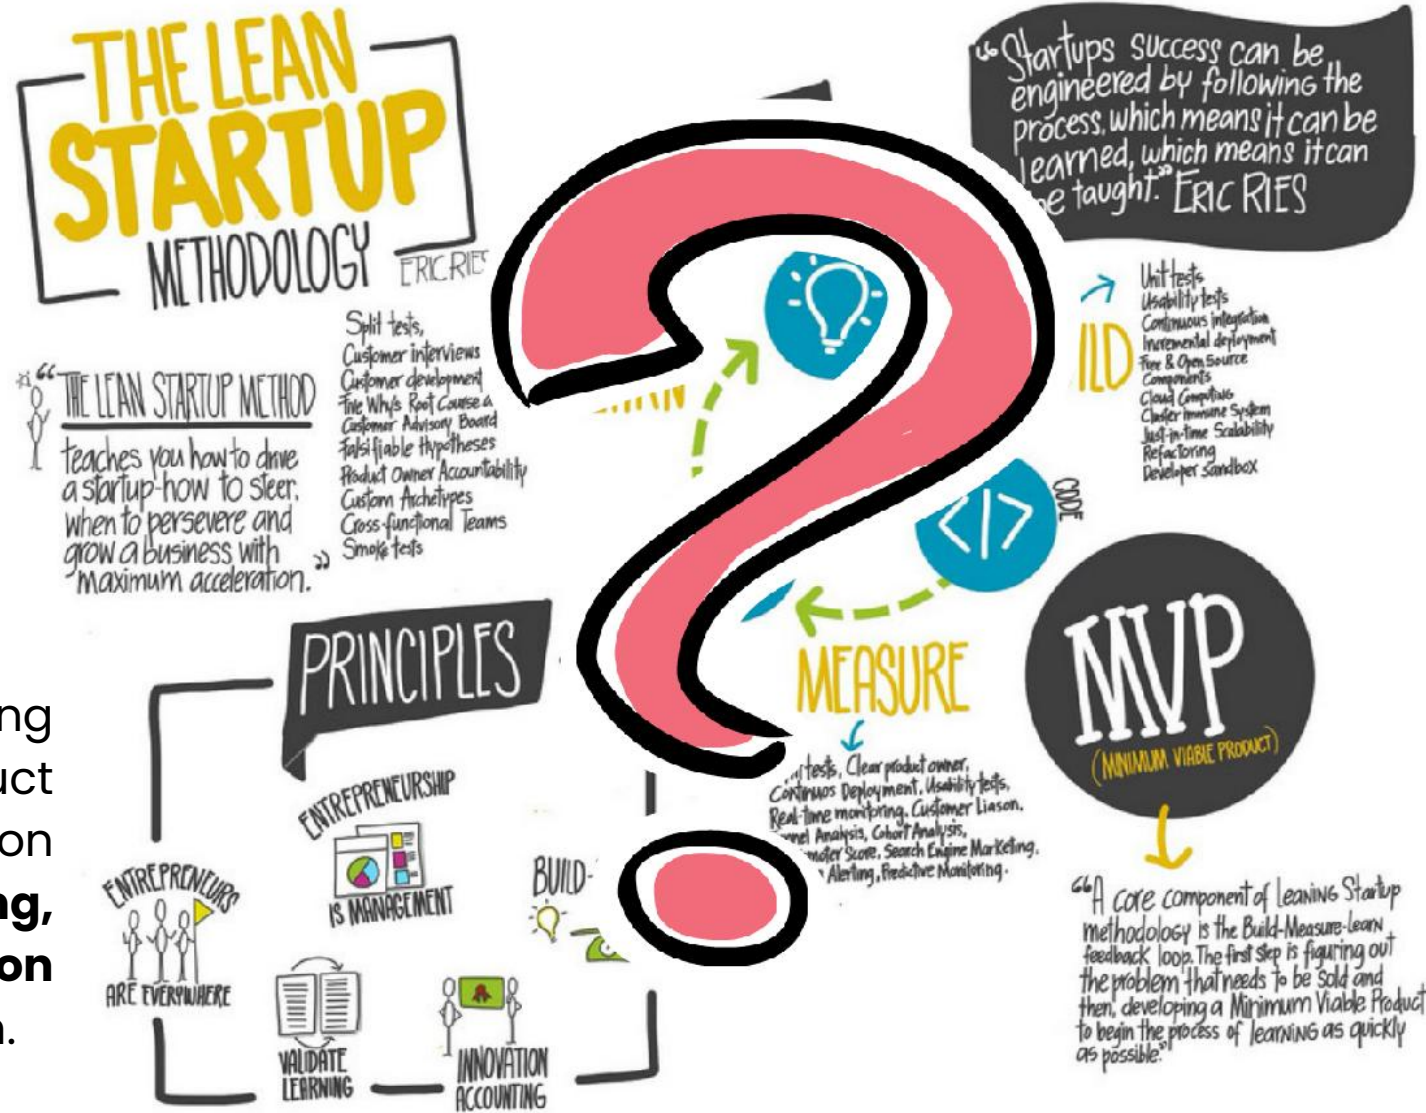 THE LEAN
STARTUP
METHODOLOGY
ERIC RIES
“Startups success can be
engineered by following the
process, which means it can be
learned, which means it can
be taught.” ERIC RIES
“THE LEAN STARTUP METHOD
teaches you how to drive
a startup-how to steer,
when to persevere and
grow a business with
maximum acceleration.”
Split tests,
Customer interviews
Customer development
Five Why's Root Course a
Customer Advisory Board
Falsifiable Hypotheses
Product Owner Accountability
Custom Archetypes
Cross-functional Teams
Smoke tests
ILD
Unit tests
Usability tests
Continuous integration
Incremental deployment
Free & Open Source
Components
Cloud Computing
Cluster Immune System
Just-in-time Scalability
Refactoring
Developer Sandbox
</>
CODE
MEASURE
tests, Clear product owner,
Continuos Deployment, Usability tests,
Real-time monitoring, Customer Liason,
nnel Analysis, Cohort Analysis,
moter Score, Search Engine Marketing,
Alerting, Predictive Monitoring.
MVP
(MINIMUM VIABLE PRODUCT)
“A core component of leaning Startup
methodology is the Build-Measure-Learn
feedback loop. The first step is figuring out
the problem that needs to be sold and
then, developing a Minimum Viable Product
to begin the process of learning as quickly
as possible.”
PRINCIPLES
ENTREPRENEURSHIP
IS MANAGEMENT
ENTREPRENEURS
ARE EVERYWHERE
BUILD-
VALIDATE
LEARNING
INNOVATION
ACCOUNTING
ng
uct
on
ng,
on
.